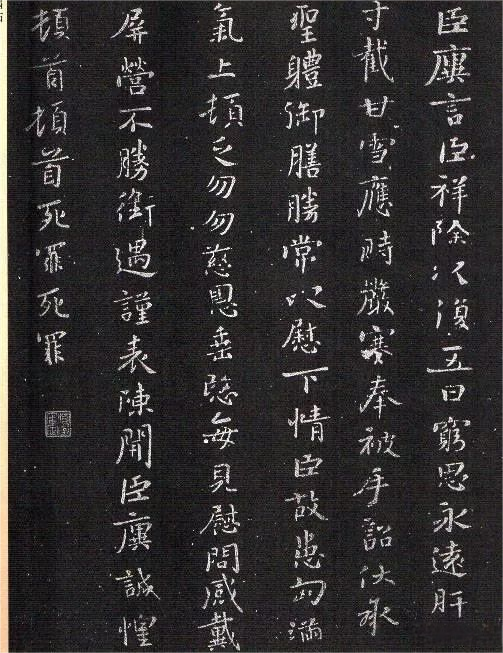 臣廙言臣祥除以復五日窮思永遠肝
寸截甘雪應時嚴寒奉被手詔伏承
聖體御膳勝常以慰下情臣故患匈滿
氣上頓乏勿勿慈恩垂愍每見慰問感戴
屏營不勝銜遇謹表陳聞臣廙誠惶
頓首頓首死罪死罪